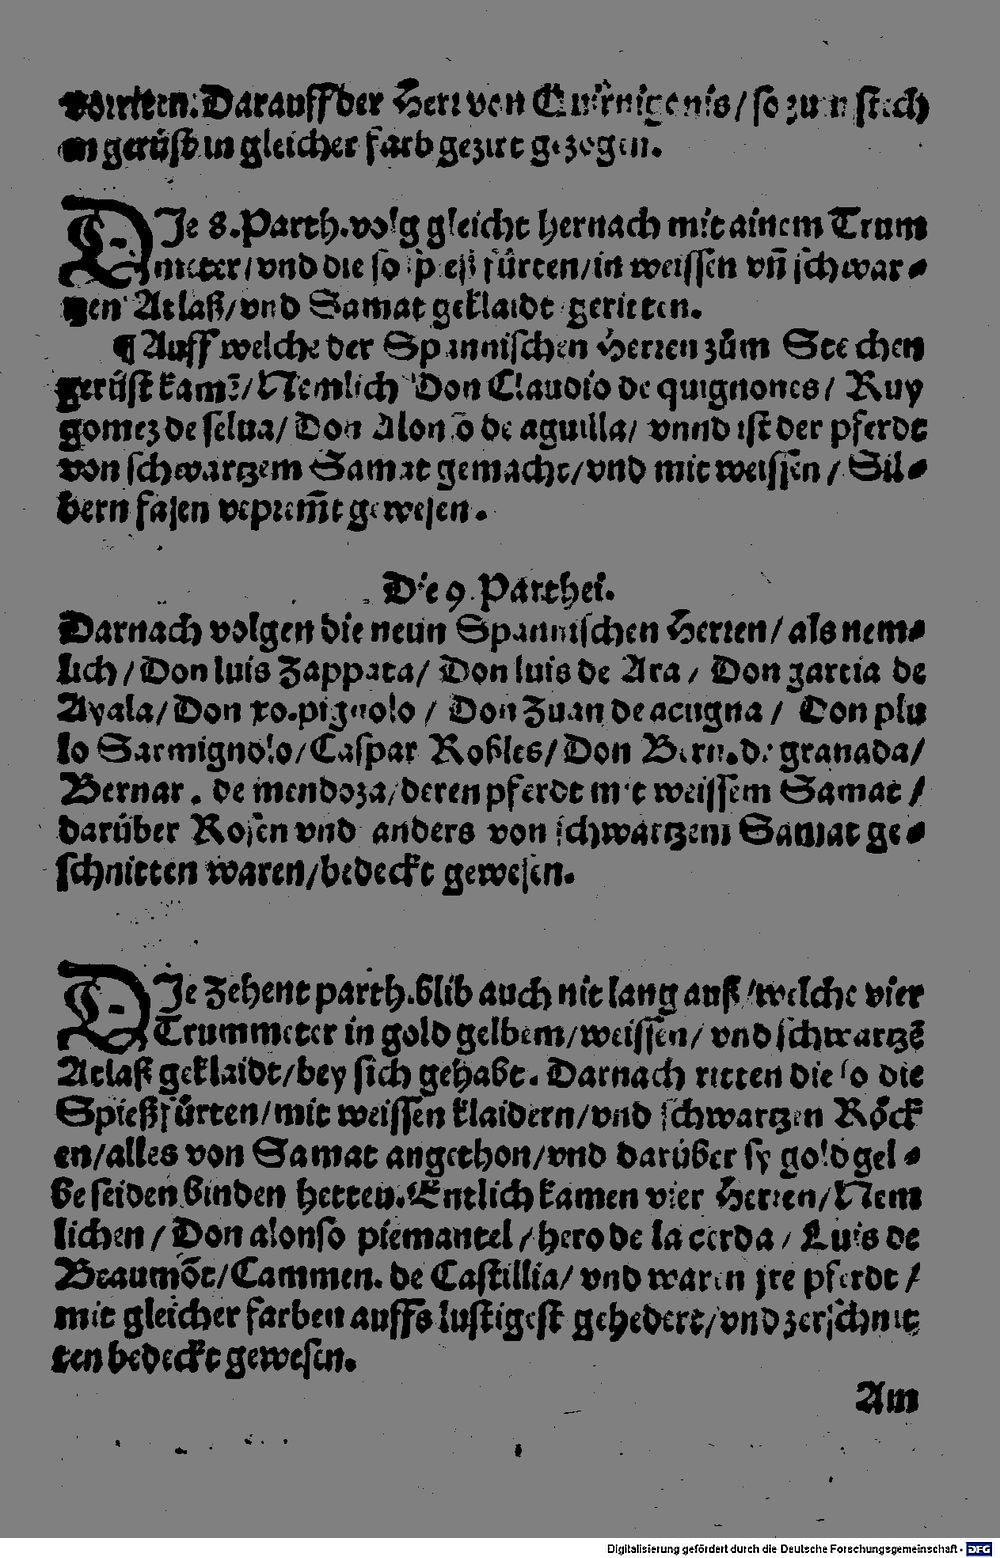 vorriten. Darauff der Herr von Quirnigonis / so zum stech
en gerüst in gleicher farb gezirt gezogen.
DIe 8. Parth. volg gleicht hernach mit ainem Trum
meter / vnd die so spieß fürten / in weissen vñ schwar⸗
tzen Atlaß / vnd Samat geklaidt geritten.
¶ Auff welche der Spannischen Herren zům Stechen
gerüst kamē / Nemlich Don Claudio de quignones / Ruy
gomez de selua / Don Alonso de aguilla / vnnd ist der pferdt
von schwartzem Samat gemacht / vnd mit weissen / Sil⸗
bern fasen veprem̄t gewesen.
Die 9. Parthei.
Darnach volgen die neun Spannischen Herren / als nem⸗
lich / Don luis Zappata / Don luis de Ara / Don garcia de
Ayala / Don ro. pignolo / Don Zuan de acugna / Don plu
lo Sarmignolo / Caspar Robles / Don Bern. de granada /
Bernar. de mendoza / deren pferdt mit weissem Samat /
darüber Rosen vnd anders von schwartzem Samat ge⸗
schnitten waren / bedeckt gewesen.
DIe Zehent parth. blib auch nit lang auß / welche vier
Trummeter in gold gelbem / weissen / vnd schwartzē
Atlaß geklaidt / bey sich gehabt. Darnach ritten die so die
Spieß fürten / mit weissen klaidern / vnd schwartzen Röck
en / alles von Samat angethon / vnd darüber sy gold gel⸗
be seiden binden hetten. Entlich kamen vier Herren / Nem
lichen / Don alonso piemantel / hero de la cerda / Luis de
Beaumōt / Cammen. de Castillia / vnd waren jre pferdt /
mit gleicher farben auffs lustigest gehedert / vnd zerschnit
ten bedeckt gewesen.
Am
Digitalisierung gefördert durch die Deutsche Forschungsgemeinschaft - DFG